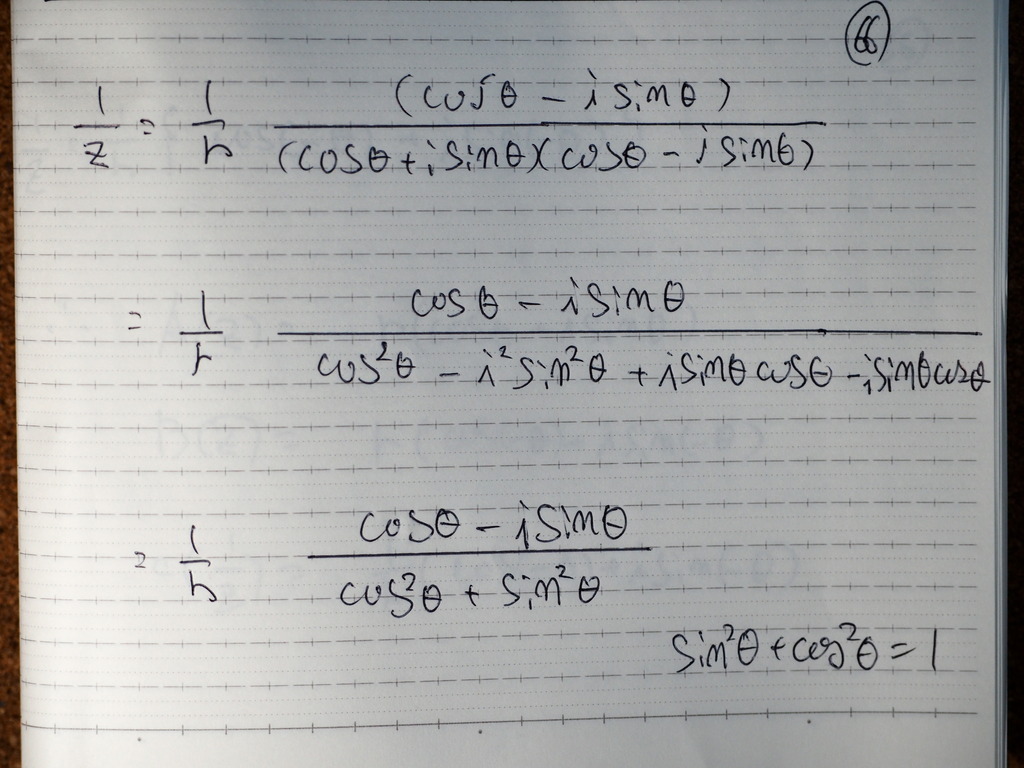 66
1/z = 1/r (cosθ - i sinθ) / (cosθ + i sinθ)(cosθ - i sinθ)
= 1/r cosθ - i sinθ / cos²θ - i² sin²θ + i sinθ cosθ - i sinθ cosθ
= 1/r cosθ - i sinθ / cos²θ + sin²θ
sin²θ + cos²θ = 1